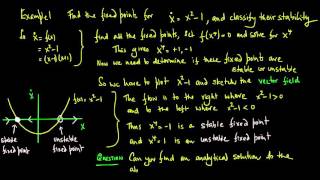 Example: Find the fixed points for ẋ = x²-1, and classify their stability
So ẋ = f(x)
= x²-1
= (x-1)(x+1)
find all the fixed points, set f(x*) = 0 and solve for x*
This gives x* = +1, -1
Now we need to determine if these fixed points are
stable or unstable
So we have to plot x²-1 and sketch the vector field
The flow is to the right where x²-1>0
and to the left where x²-1<0
Thus x* = -1 is a stable fixed point
and x* = 1 is an unstable fixed point
Question: Can you find an analytical solution to the
ẋ
f(x) = x²-1
x
stable
fixed point
unstable
fixed point